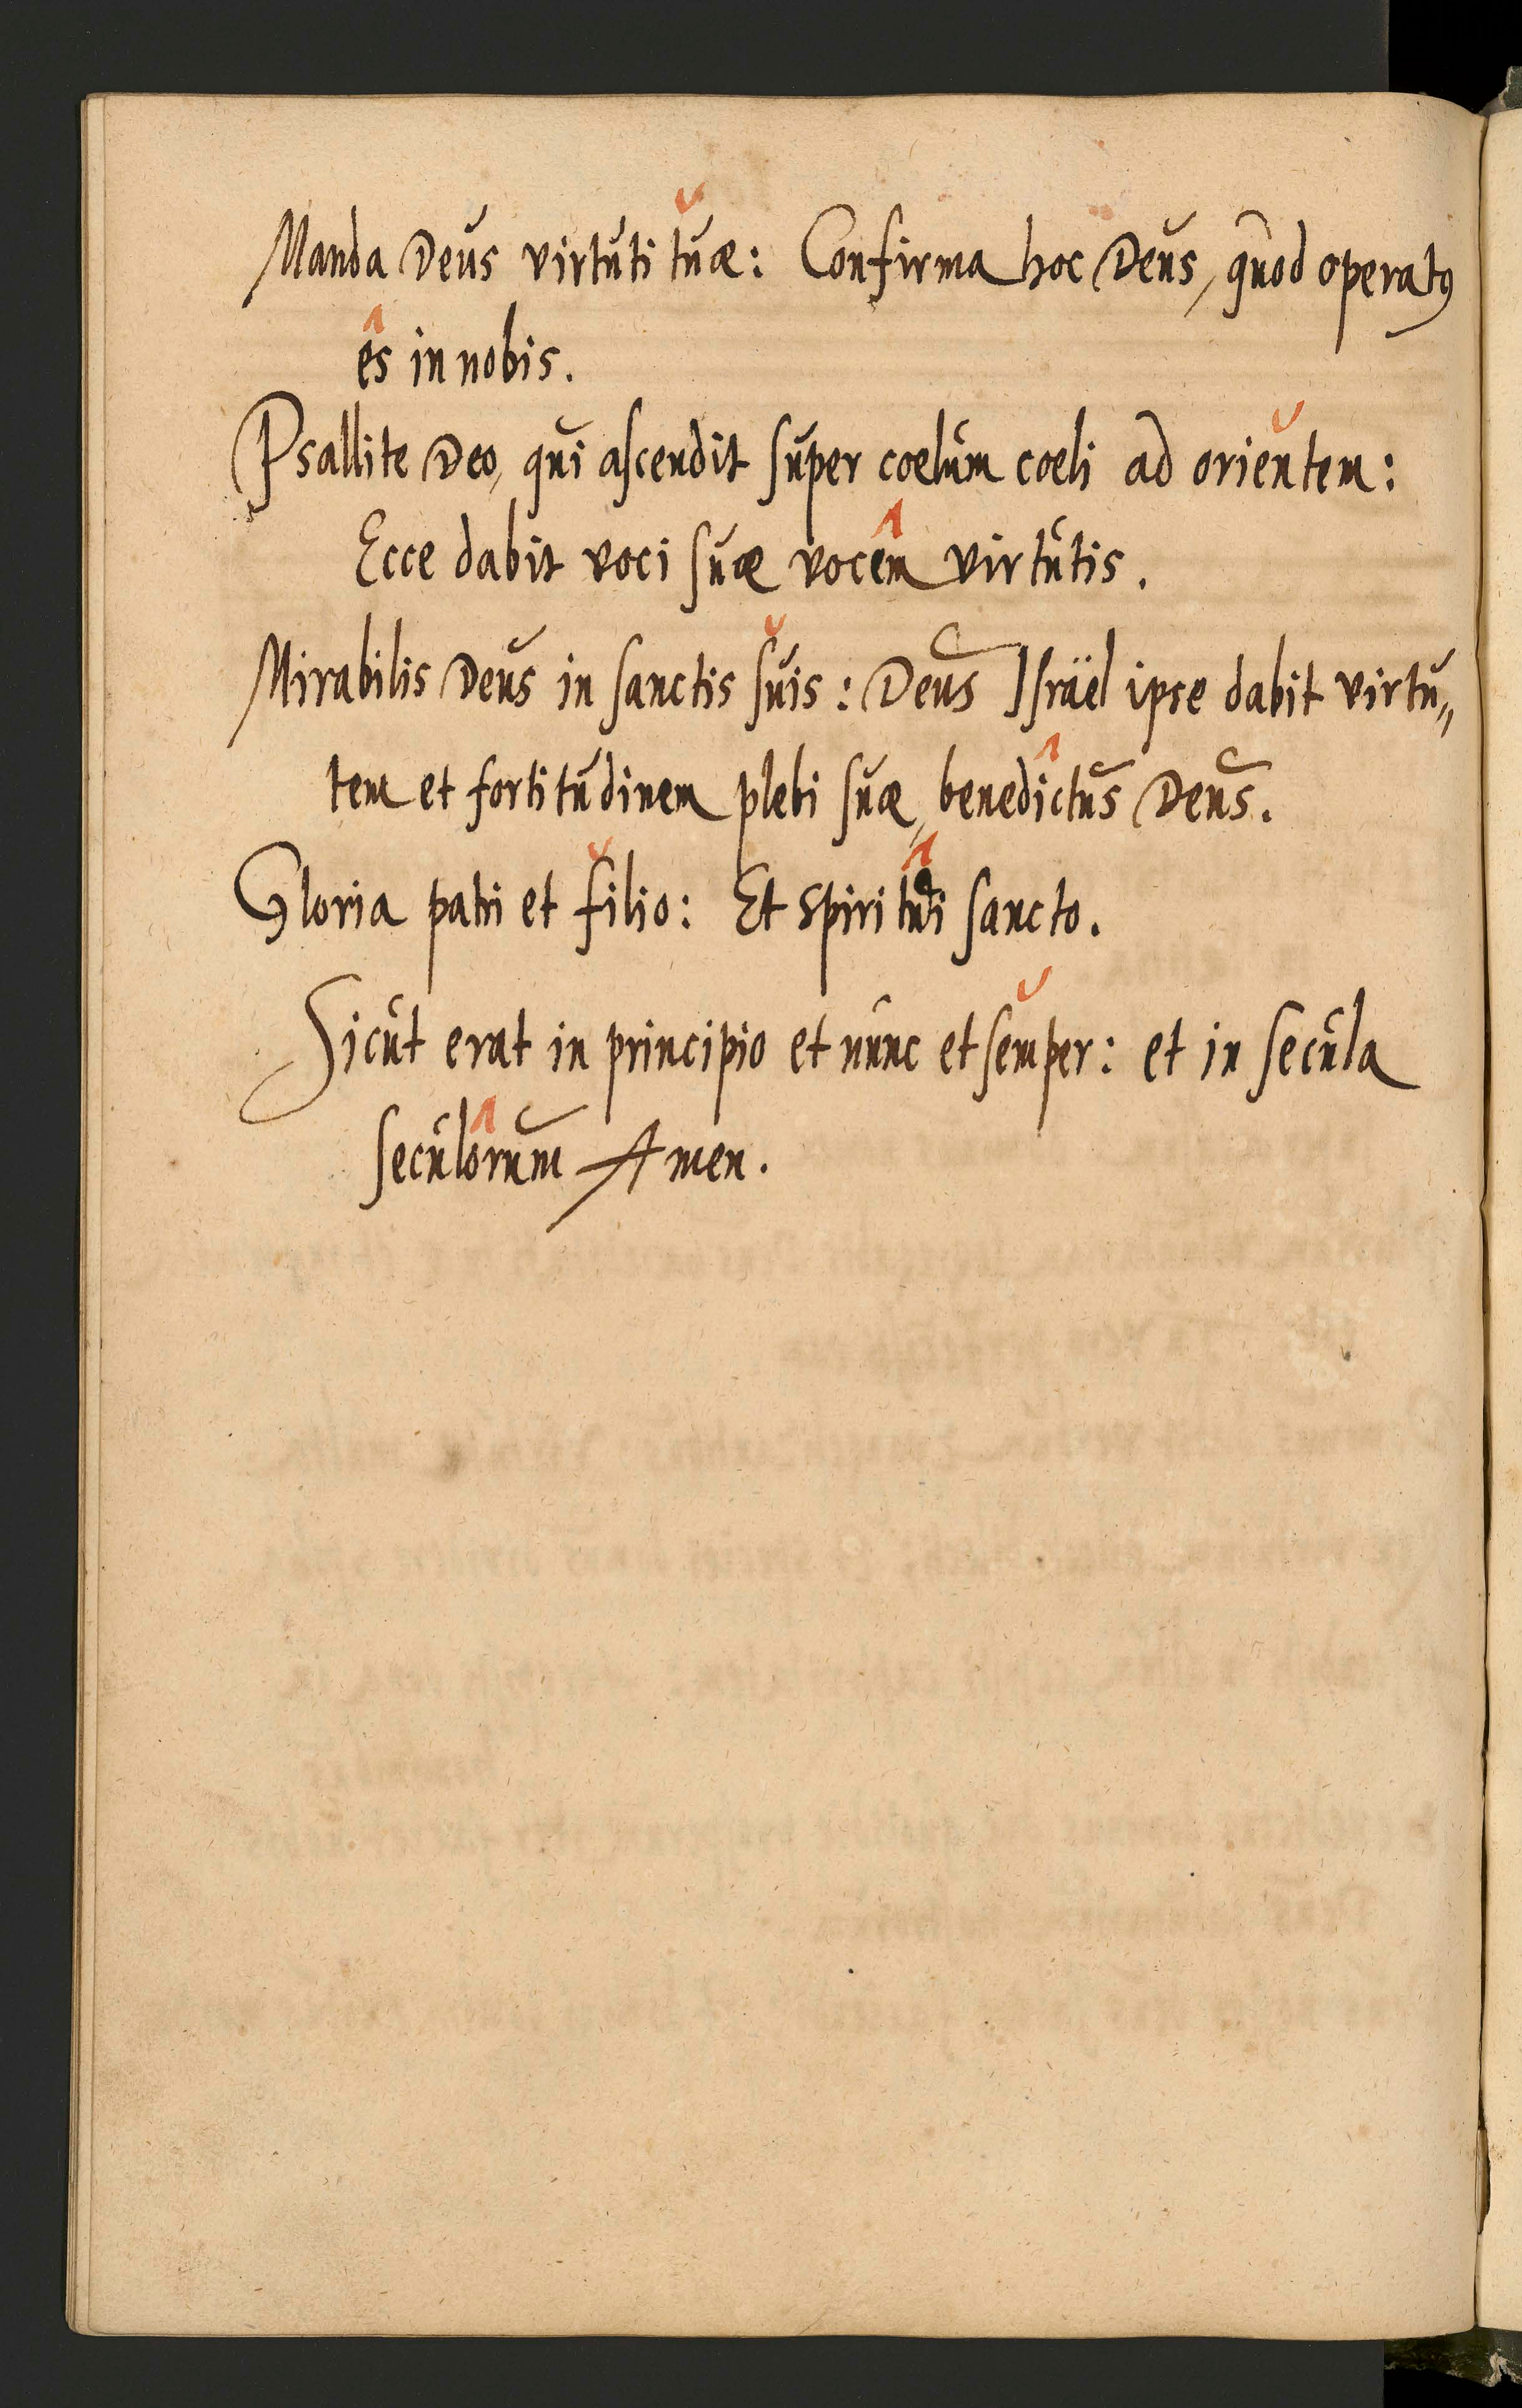 Manda Deus virtuti tuæ: Confirma hoc Deus, quod operatꝰ
es in nobis.
Psallite Deo, qui ascendit super coelum coeli ad orientem:
Ecce dabit voci suæ vocem virtutis.
Mirabilis Deus in sanctis suis: Deus Israël ipse dabit virtu„
tem et fortitudinem plebi suæ, benedictus Deus.
Gloria patri et filio: Et spiritui sancto.
Sicut erat in principio et nunc et semper: et in secula
seculorum Amen.